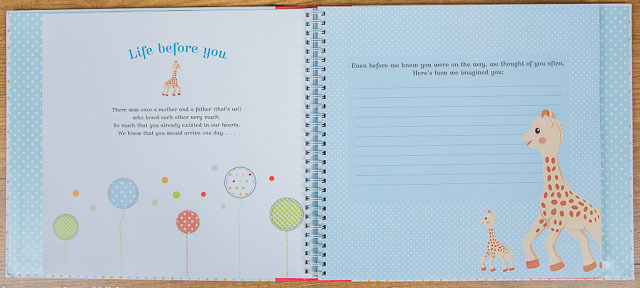 Life before you
There was once a mother and a father (that's us!)
who loved each other very much.
So much that you already existed in our hearts.
We knew that you would arrive one day. . . .
Even before we knew you were on the way, we thought of you often.
Here's how we imagined you: